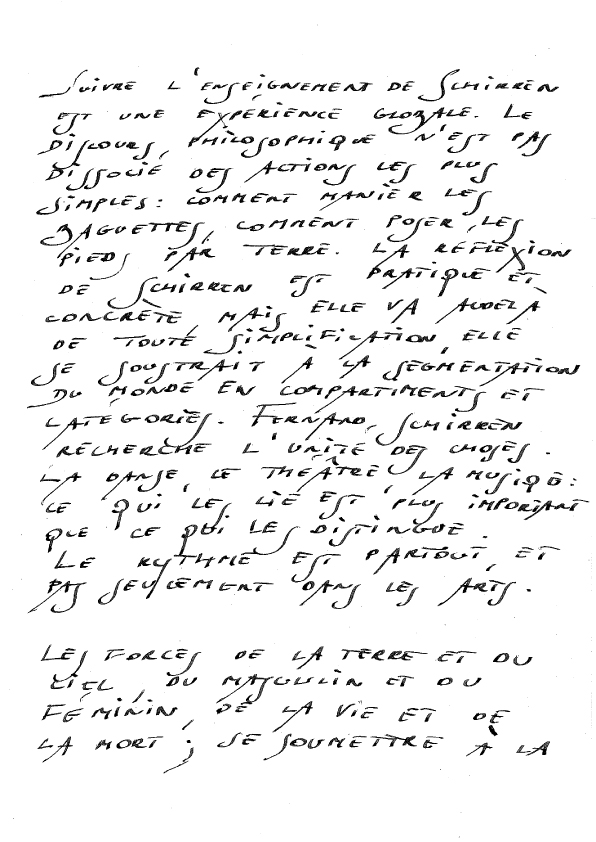 SUIVRE L'ENSEIGNEMENT DE SCHIRREN
EST UNE EXPÉRIENCE GLOBALE. LE
DISCOURS, PHILOSOPHIQUE N'EST PAS
DISSOCIÉ DES ACTIONS LES PLUS
SIMPLES : COMMENT MANIER LES
BAGUETTES, COMMENT POSER LES
PIEDS PAR TERRE. LA RÉFLEXION
DE SCHIRREN EST PRATIQUE ET
CONCRÈTE MAIS ELLE VA AUDELÀ
DE TOUTE SIMPLIFICATION, ELLE
SE SOUSTRAIT À LA SEGMENTATION
DU MONDE EN COMPARTIMENTS ET
CATÉGORIES. FERNAND SCHIRREN
RECHERCHE L'UNITÉ DES CHOSES.
LA DANSE, LE THÉÂTRE, LA MUSIQUE :
CE QUI LES LIE EST PLUS IMPORTANT
QUE CE QUI LES DISTINGUE.
LE RYTHME EST PARTOUT, ET
PAS SEULEMENT DANS LES ARTS.
LES FORCES DE LA TERRE ET DU
CIEL, DU MASCULIN ET DU
FÉMININ, DE LA VIE ET DE
LA MORT ; SE SOUMETTRE À LA